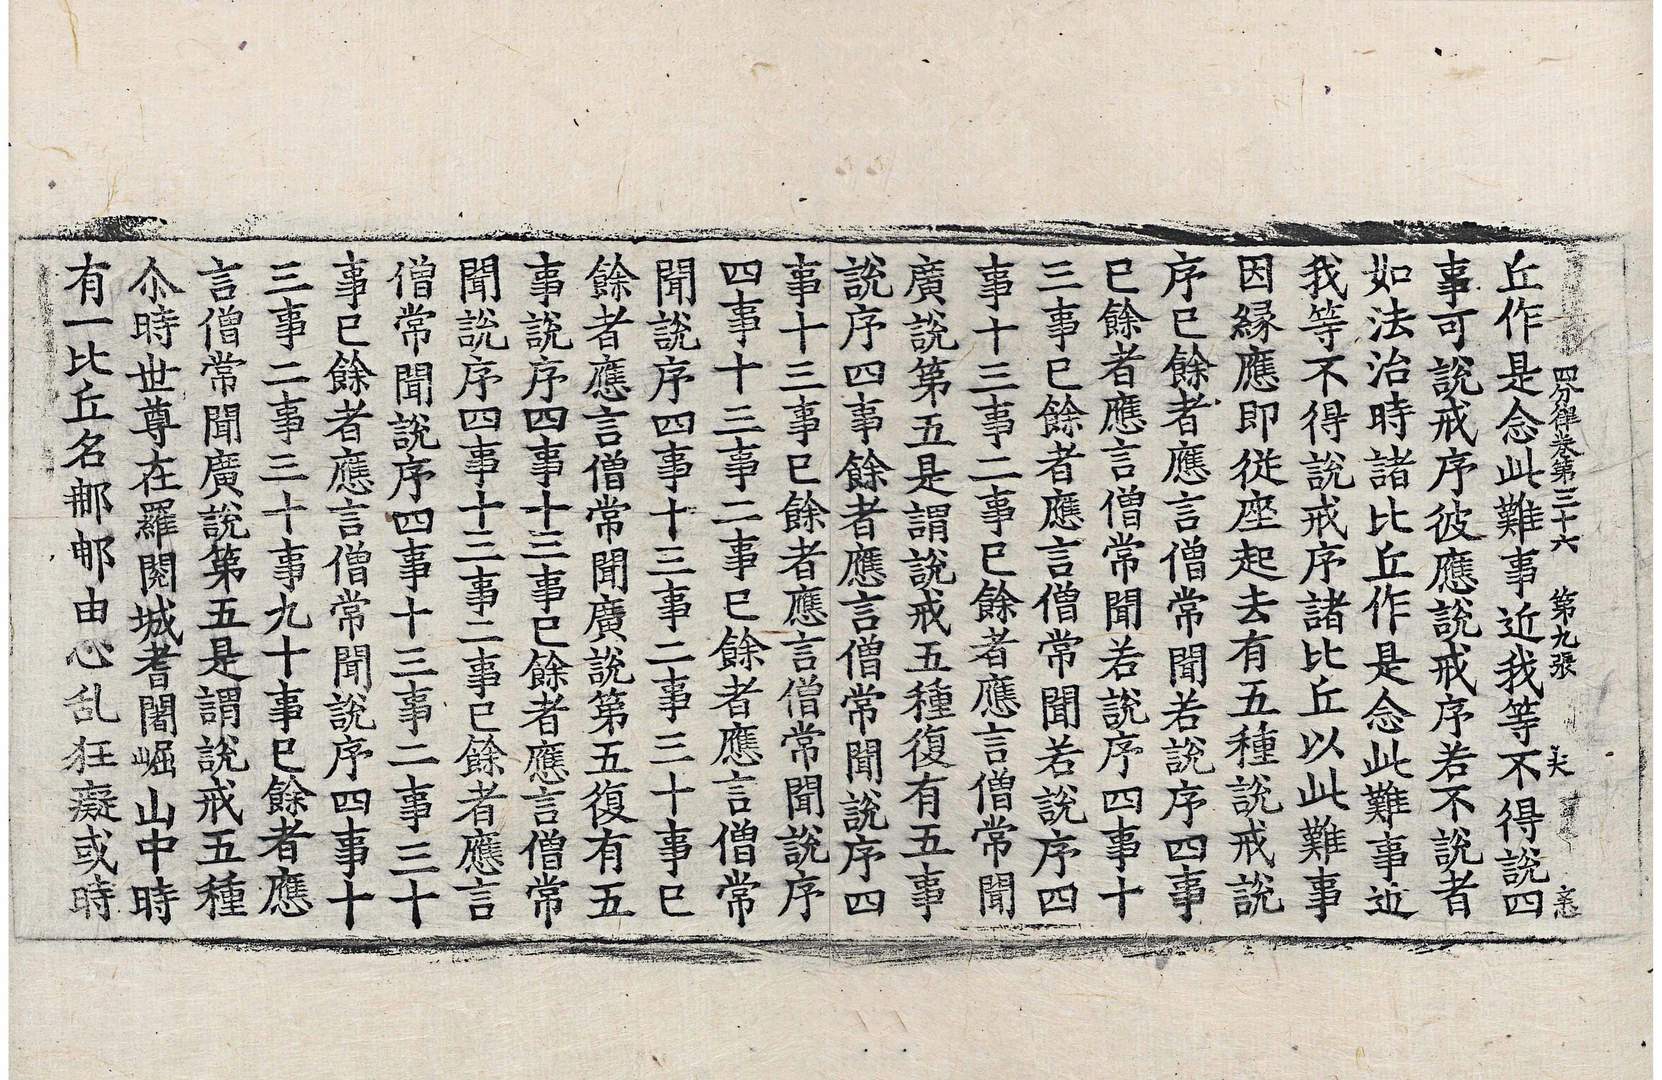 四分律卷第三十六 第九張 夫
丘作是念此難事近我等不得說四
事可說戒序彼應說戒序若不說者
如法治時諸比丘作是念此難事近
我等不得說戒序諸比丘以此難事
因緣應即從座起去有五種說戒說
序已餘者應言僧常聞若說序四事
已餘者應言僧常聞若說序四事十
三事已餘者應言僧常聞若說序四
事十三事二事已餘者應言僧常聞
廣說第五是謂說戒五種復有五事
說序四事餘者應言僧常聞說序四
事十三事已餘者應言僧常聞說序
四事十三事二事已餘者應言僧常
聞說序四事十三事二事三十事已
餘者應言僧常聞廣說第五復有五
事說序四事十三事已餘者應言僧常
聞說序四事十三事二事已餘者應言
僧常聞說序四事十三事二事三十
事已餘者應言僧常聞說序四事十
三事二事三十事九十事已餘者應
言僧常聞廣說第五是謂說戒五種
尒時世尊在羅閱城耆闍崛山中時
有一比丘名𨙻𨙻由心乱狂癡或時